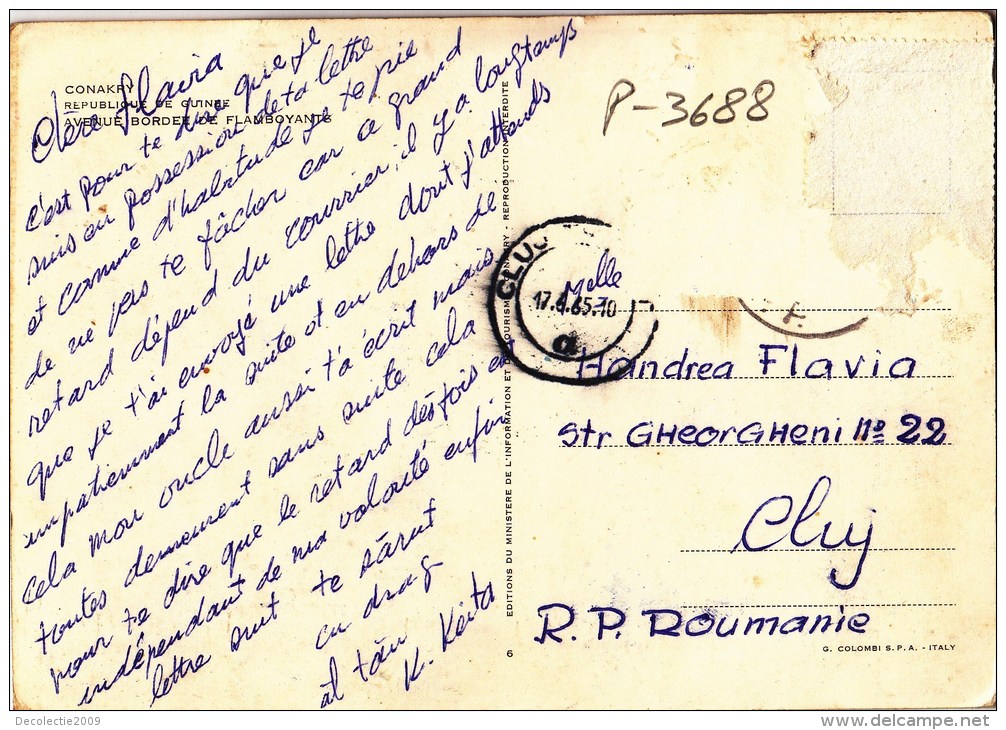 CONAKRY
REPUBLIQUE DE GUINEE
AVENUE BORDEE DE FLAMBOYANTS
Chère Flavia
c'est pour te dire que je
suis en possession de ta lettre
et comme d'habitude je te prie
de ne pas te fâcher car ce grand
retard dépend du courrier, il y a longtemps
que je t'ai envoyé une lettre dont j'attends
impatiemment la suite et en dehors de
cela mon oncle aussi t'a écrit mais
toutes demeurent sans suite cela
pour te dire que le retard des fois est
indépendant de ma volonté enfin
lettre suit te sărut
cu drag
al tău
K. Keita
EDITIONS DU MINISTERE DE L'INFORMATION ET DU TOURISME CONAKRY - REPRODUCTION INTERDITE
6
P-3688
CLUJ
17.6.65.10
d
Melle
Handrea Flavia
str GHeorGHeni No 22
Cluj
R.P. Roumanie
G. COLOMBI S.P.A. - ITALY
Decolectie2009
delcampe.net